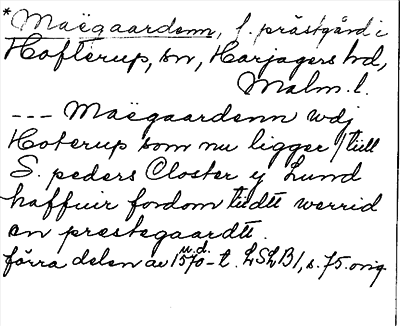 *Maëgaarden, f. prästgård i
Hofterup, sn, Harjagers hd,
Malm. l.
--- Maëgaardenn wdj
Hoterup som nu ligger /till
S. peders Closter y Lund
haffuir fordom tiidtt werrid
en prestegaardtt.
förra delen av m.d. 1570-t. LSLB1, s. 75. orig.